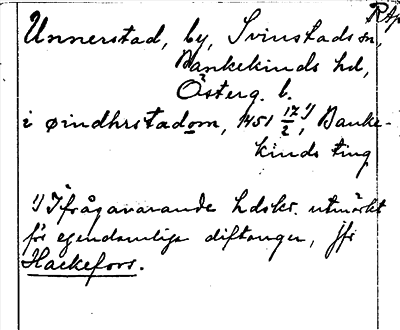 RAp
Unnerstad, by, Svinstads sn,
Bankekinds hd,
Österg. l.
i øindhrstadom, 1451 17/2 1), Banke-
kinds ting
1) Ifrågavarande hdskr. utmärkt
för egendomliga diftonger, jfr
Hackefors.